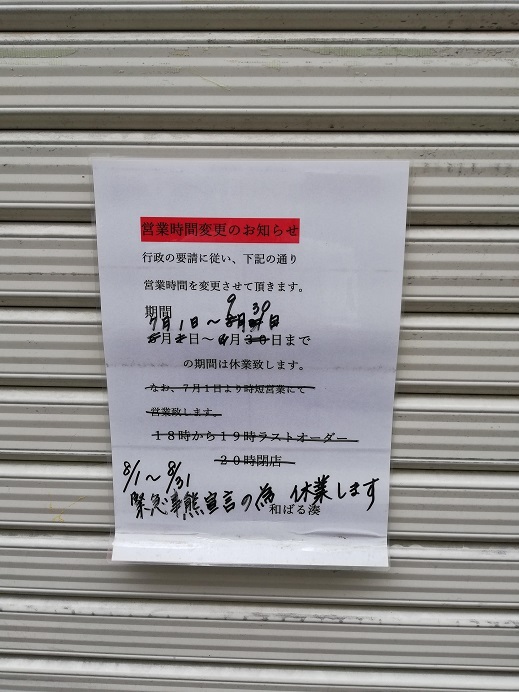 営業時間変更のお知らせ
行政の要請に従い、下記の通り
営業時間を変更させて頂きます。
期間
9 30
7月1日～8月31日
月2日～月30日まで
の期間は休業致します。
なお、7月1日より時短営業にて
営業致します。
18時から19時ラストオーダー
20時閉店
8/1～8/31
緊急事態宣言の為 休業します
和ばる湊